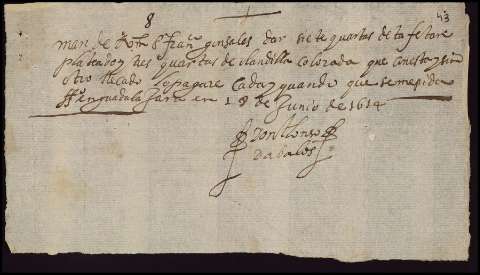 8
43
mande Vm. Sr. Franco. gonsales dar siete quartas de tafetan
plateado y tres quartas de olandilla colorada que con esta y sin
otro Recado lo pagare cada y quando que se me pida
en guadalajara en 18 de Junio de 1614
Don Alonso
Dabalos